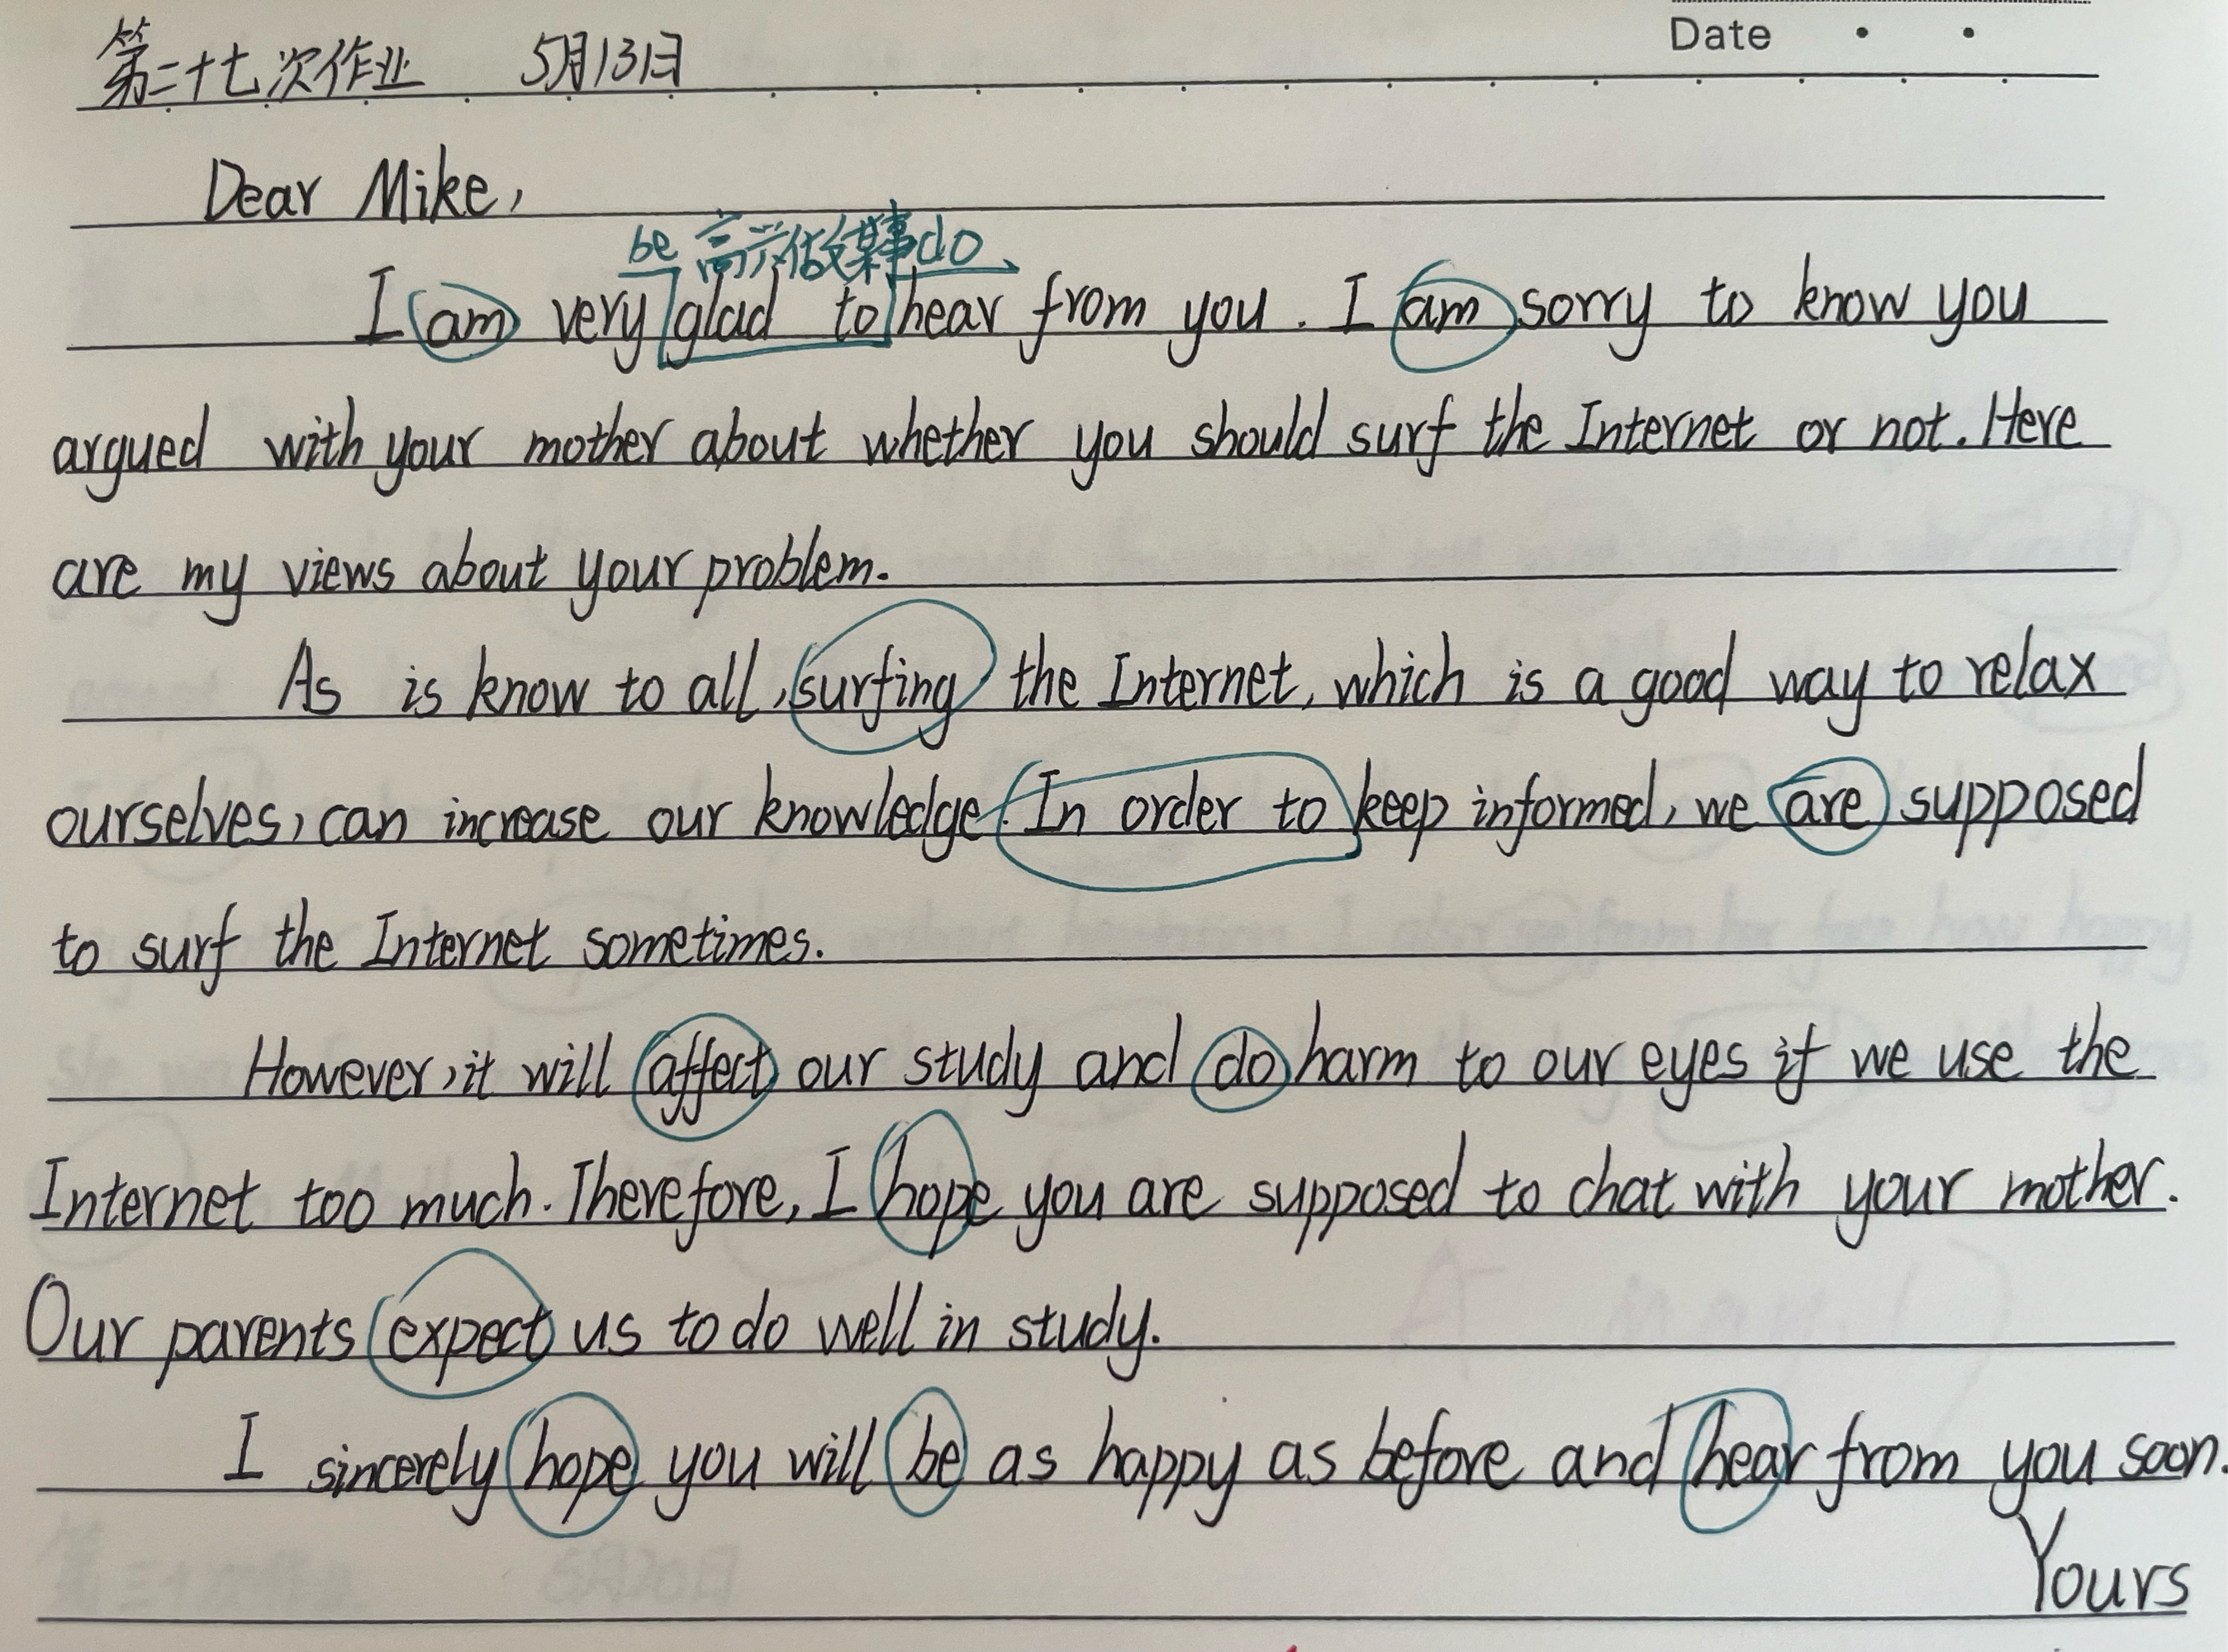 Date
第二十七次作业 5月13日
Dear Mike,
be 高兴做某事do
I am very glad to hear from you. I am sorry to know you
argued with your mother about whether you should surf the Internet or not. Here
are my views about your problem.
As is know to all, surfing the Internet, which is a good way to relax
ourselves, can increase our knowledge. In order to keep informed, we are supposed
to surf the Internet sometimes.
However, it will affect our study and do harm to our eyes if we use the
Internet too much. Therefore, I hope you are supposed to chat with your mother.
Our parents expect us to do well in study.
I sincerely hope you will be as happy as before and hear from you soon.
Yours